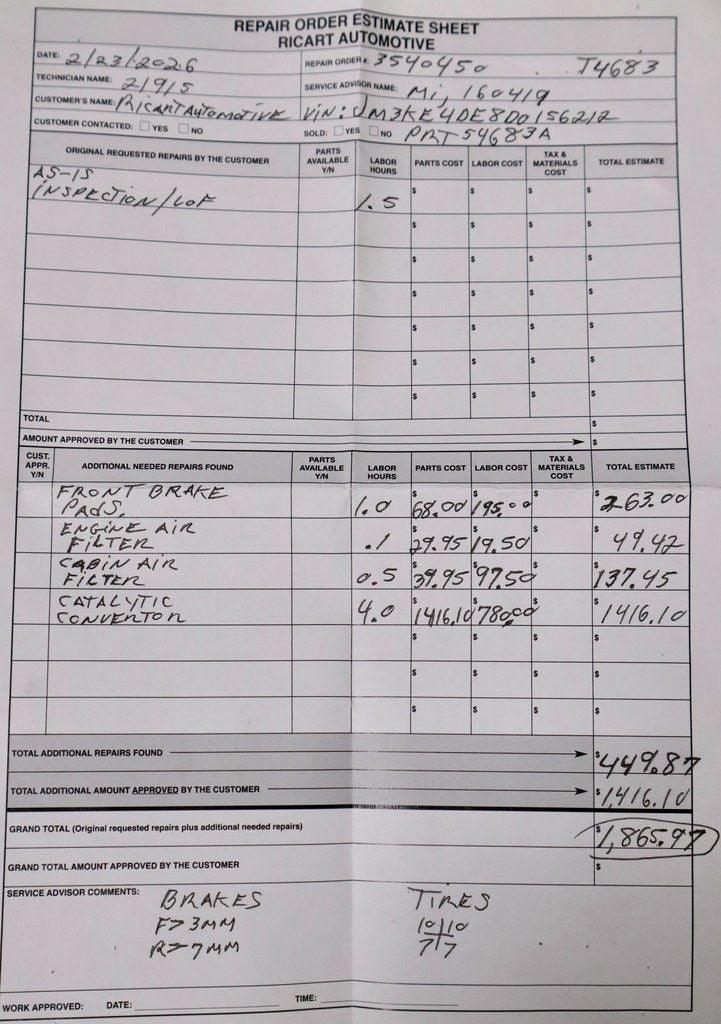 REPAIR ORDER ESTIMATE SHEET
RICART AUTOMOTIVE
DATE: 2/23/2026 REPAIR ORDER #: 3540450 T4683
TECHNICIAN NAME: 21915 SERVICE ADVISOR NAME: Mi, 160419
CUSTOMER'S NAME: RICART AUTOMOTIVE VIN: JM3KE4DE8D0156212
CUSTOMER CONTACTED: YES NO SOLD: YES NO PRT54683A
ORIGINAL REQUESTED REPAIRS BY THE CUSTOMER PARTS AVAILABLE Y/N LABOR HOURS PARTS COST LABOR COST TAX & MATERIALS COST TOTAL ESTIMATE
AS-IS $ $ $ $
INSPECTION/LOF 1.5
$ $ $ $
$ $ $ $
$ $ $ $
$ $ $ $
$ $ $ $
$ $ $ $
TOTAL $
AMOUNT APPROVED BY THE CUSTOMER $
CUST. APPR. Y/N ADDITIONAL NEEDED REPAIRS FOUND PARTS AVAILABLE Y/N LABOR HOURS PARTS COST LABOR COST TAX & MATERIALS COST TOTAL ESTIMATE
FRONT BRAKE
PADS. 1.0 $68.00 $195.00 $ $263.00
ENGINE AIR
FILTER .1 $29.95 $19.50 $ $49.42
CABIN AIR
FILTER 0.5 $39.95 $97.50 $ $137.45
CATALYTIC
CONVERTOR 4.0 $1416.10 $780.00 $ $1416.10
$ $ $ $
$ $ $ $
$ $ $ $
TOTAL ADDITIONAL REPAIRS FOUND $449.87
TOTAL ADDITIONAL AMOUNT APPROVED BY THE CUSTOMER $1,416.10
GRAND TOTAL (Original requested repairs plus additional needed repairs) $1,865.97
GRAND TOTAL AMOUNT APPROVED BY THE CUSTOMER $
SERVICE ADVISOR COMMENTS: BRAKES TIRES
F>3MM 10|10
R>7MM 7|7
WORK APPROVED: DATE: TIME: